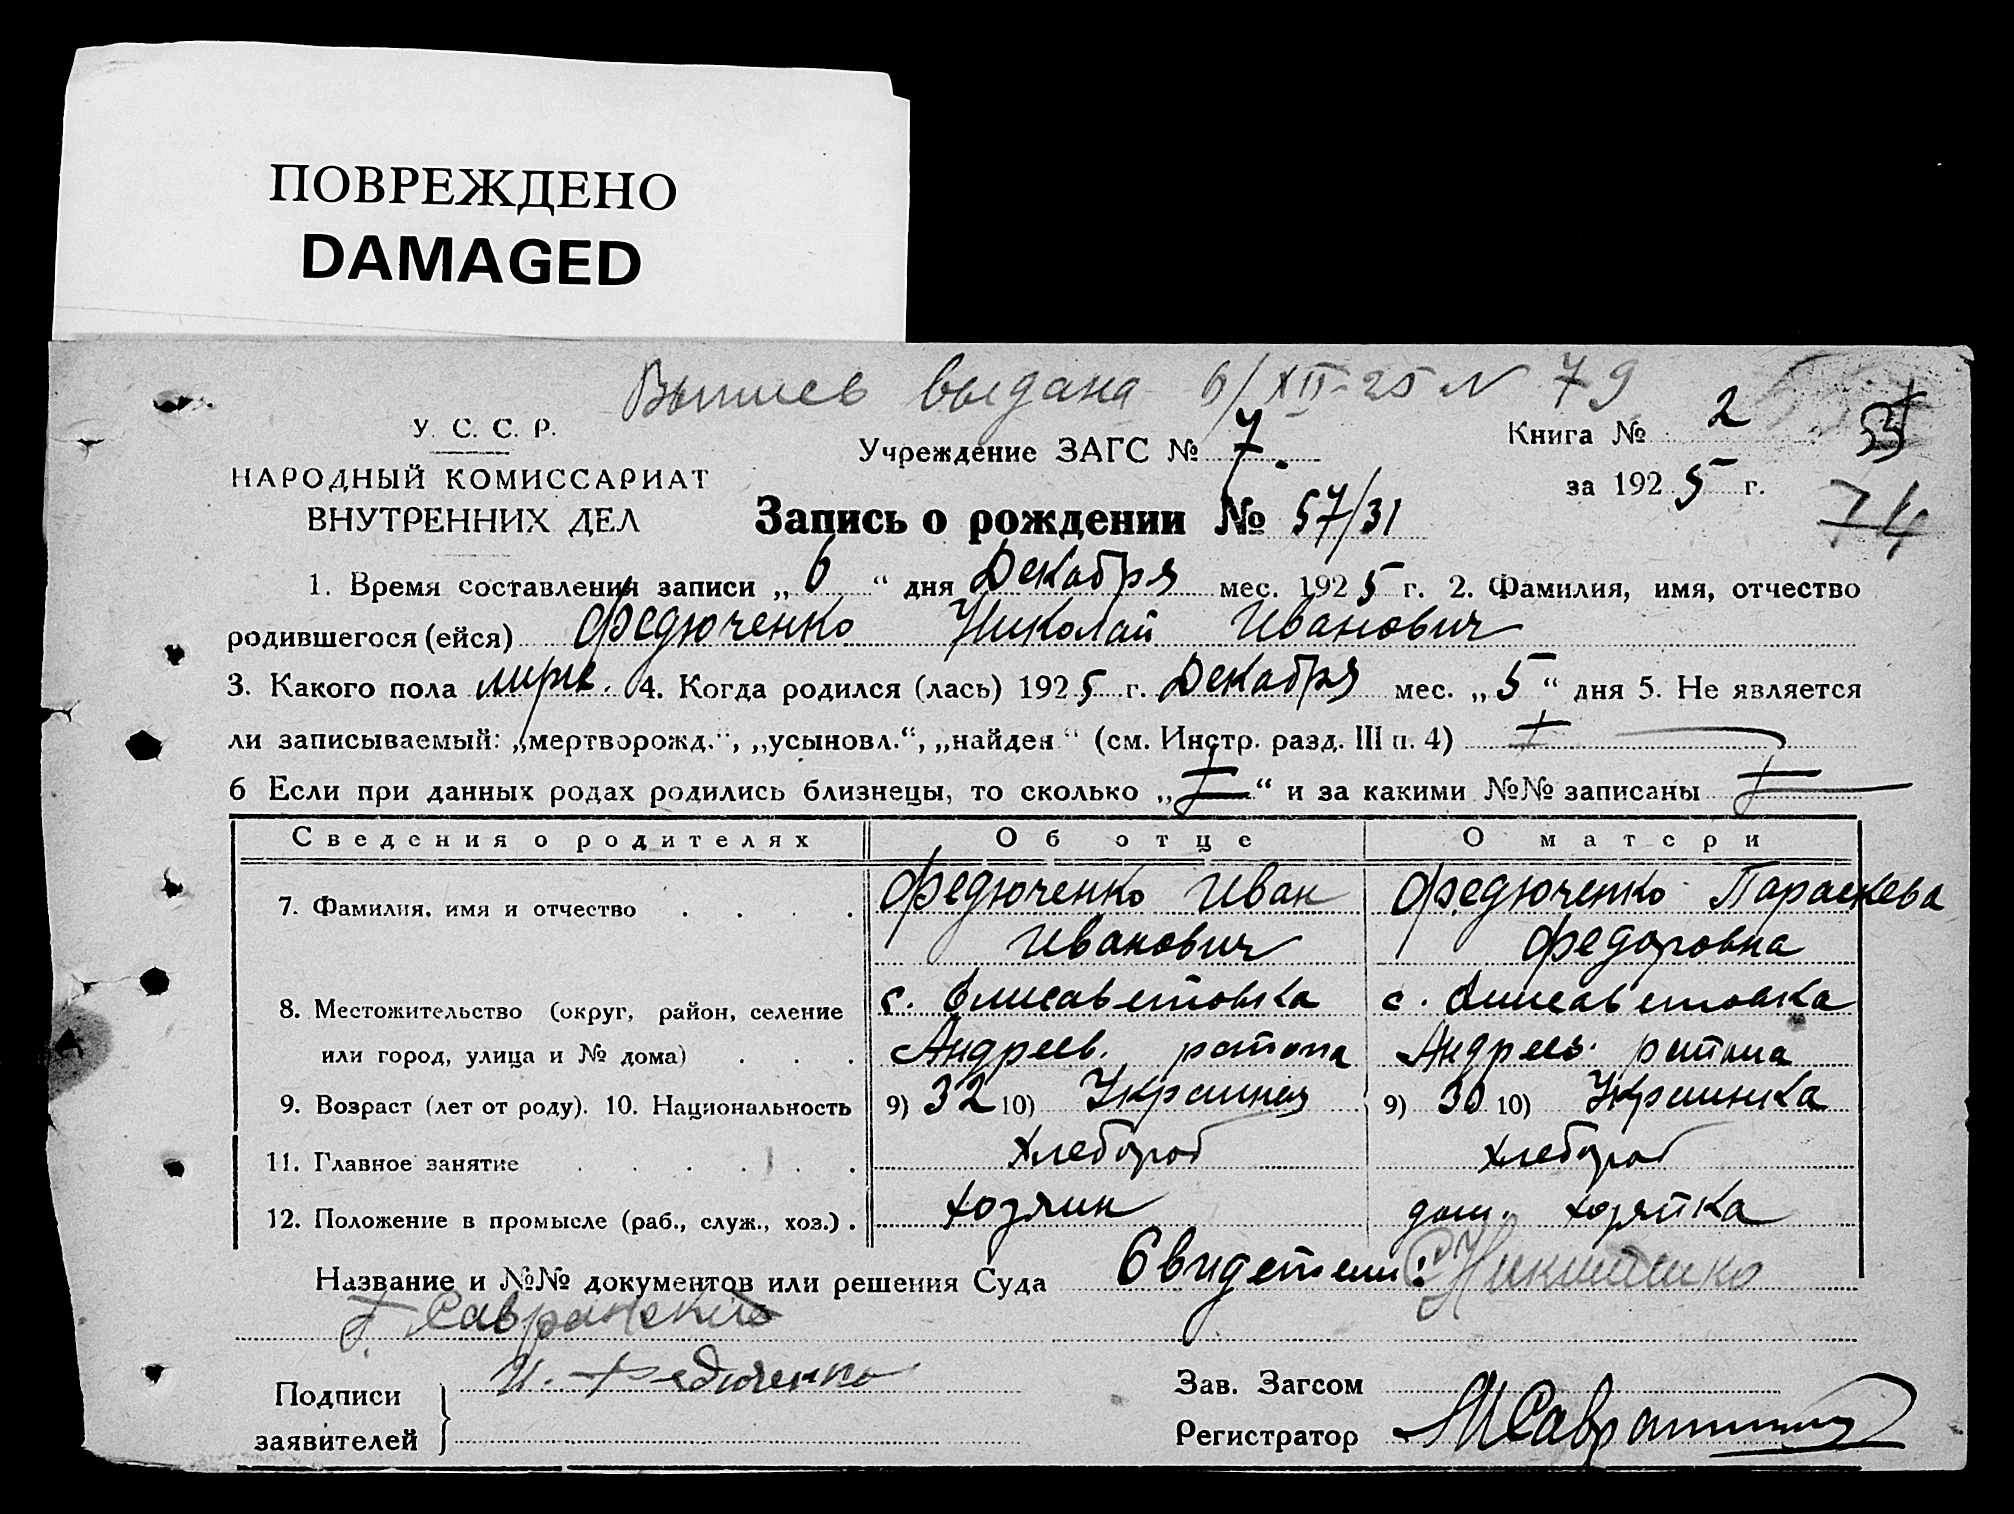 ПОВРЕЖДЕНО
DAMAGED
Выпись выдана 6/XII-25 N 79
У. С. С. Р.
НАРОДНЫЙ КОМИССАРИАТ
ВНУТРЕННИХ ДЕЛ
Учреждение ЗАГС № 7.
Книга № 2
за 1925 г.
74
Запись о рождении № 57/31
1. Время составления записи „6“ дня Декабря мес. 1925 г. 2. Фамилия, имя, отчество
родившегося (ейся) Федюченко Николай Иванович
3. Какого пола муже. 4. Когда родился (лась) 1925 г. Декабря мес. „5“ дня 5. Не является
ли записываемый: „мертворожд.“, „усыновл.“, „найден“ (см. Инстр. разд. III п. 4)
6 Если при данных родах родились близнецы, то сколько „ “ и за какими №№ записаны
Сведения о родителях Об отце О матери
7. Фамилия, имя и отчество . . . . Федюченко Иван Федюченко Параскева
Иванович Федоровна
8. Местожительство (округ, район, селение с. Елисаветовка с. Елисаветовка
или город, улица и № дома) . . . Андреев. района Андреев. района
9. Возраст (лет от роду). 10. Национальность 9) 32 10) Украинец 9) 30 10) Украинка
11. Главное занятие . . . . . . Хлебороб хлебороб
12. Положение в промысле (раб., служ., хоз.) . хозяин дом. хозяйка
Название и №№ документов или решения Суда Свидетели: Никитенко
Савранский
Подписи
заявителей
И. Федюченко
Зав. Загсом
Регистратор